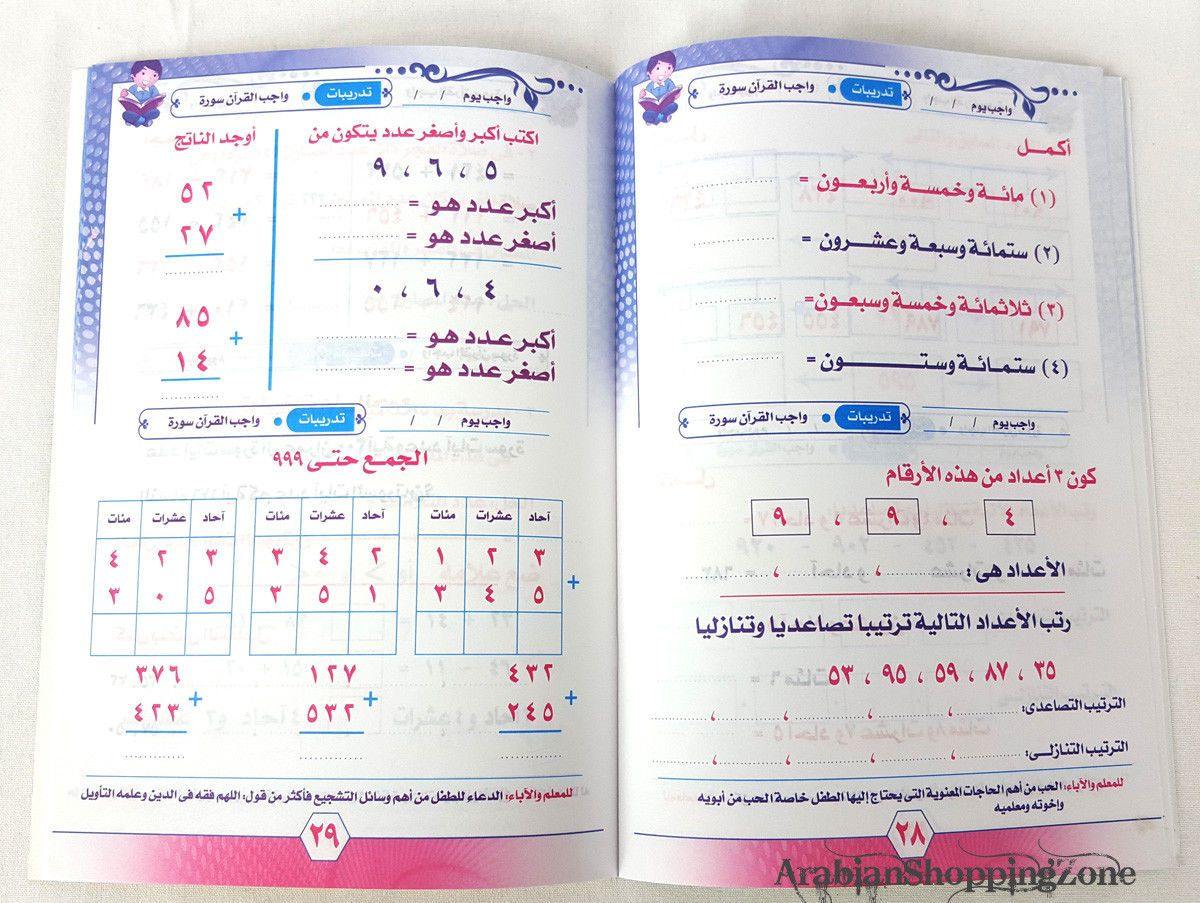 واجب يوم / / تدريبات • واجب القرآن سورة
أكمـل
(١) مائـة وخمسـة وأربعـون = ..........
(٢) ستمائـة وسبعـة وعشـرون = ..........
(٣) ثلاثمائـة وخمسـة وسبعـون= ..........
(٤) ستمـائـة وستـــــون = ..........
واجب يوم / / تدريبات • واجب القرآن سورة
كون ٣ أعداد من هذه الأرقام
٤ ، ٩ ، ٩
الأعداد هى : .......... ، .......... ، ..........
رتب الأعداد التالية ترتيبا تصاعديا وتنازليا
٣٥ ، ٨٧ ، ٥٩ ، ٩٥ ، ٥٣
الترتيب التصاعدى: .......... ، .......... ، .......... ، .......... ، ..........
الترتيب التنازلى: .......... ، .......... ، .......... ، .......... ، ..........
للمعلم والآباء: الحب من أهم الحاجات المعنوية التى يحتاج إليها الطفل خاصة الحب من أبويه
وإخوته ومعلميه
٢٨
واجب يوم / / تدريبات • واجب القرآن سورة
اكتب أكبر وأصغر عدد يتكون من
٥ ، ٦ ، ٩
أكبر عـدد هـو = ..........
أصغر عـدد هـو = ..........
٤ ، ٦ ، ٠
أكبر عـدد هـو = ..........
أصغر عـدد هـو = ..........
أوجد الناتج
٥٢
+
٢٧
..........
٨٥
+
١٤
..........
واجب يوم / / تدريبات • واجب القرآن سورة
الجمـع حتـى ٩٩٩
آحاد عشرات مئات آحاد عشرات مئات آحاد عشرات مئات
٣ ٢ ١ ٢ ٤ ٣ ٣ ٢ ٤
+
٥ ٤ ٣ ١ ٥ ٣ ٥ ٠ ٣
٤٣٢ ١٢٧ ٣٧٦
+ + +
٢٤٥ ٥٣٢ ٤٢٣
.......... .......... ..........
للمعلم والآباء: الدعاء للطفل من أهم وسائل التشجيع فأكثر من قول: اللهم فقه فى الدين وعلمه التأويل
٢٩
ArabianShoppingZone